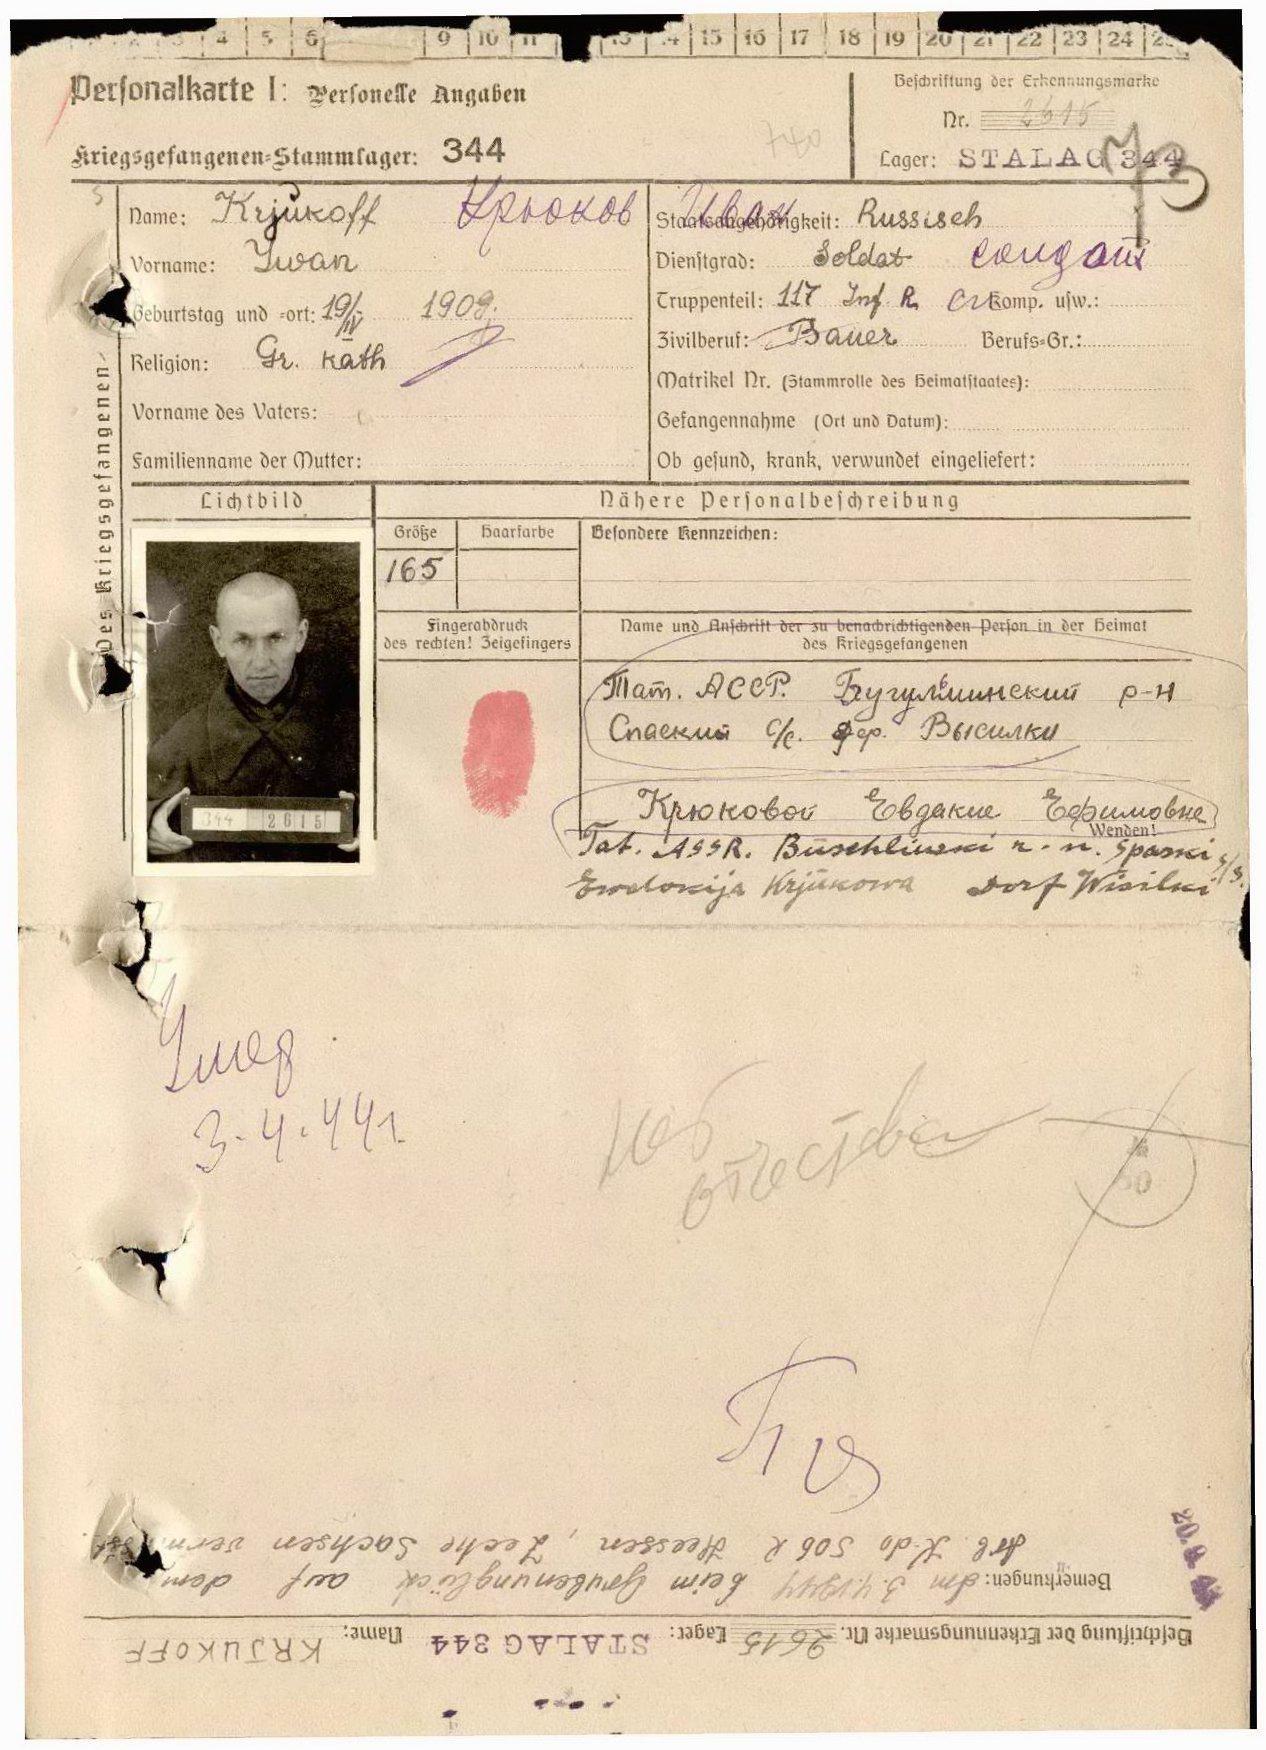 4 5 6 9 10 11 13 14 15 16 17 18 19 20 21 22 23 24 25
Personalkarte I: Personelle Angaben
Beschriftung der Erkennungsmarke
Nr. 2615
740
Kriegsgefangenen-Stammlager: 344
Lager: STALAG 344
Name: Krjukoff Крюков Иван
Staatsangehörigkeit: Russisch
Vorname: Iwan
Dienstgrad: Soldat солдат
Geburtstag und -ort: 19/IV 1909.
Truppenteil: 117 Inf R Komp. usw.:
Zivilberuf: Bauer Berufs-Gr.:
Religion: Gr. kath
Matrikel Nr. (Stammrolle des Heimatstaates):
Vorname des Vaters:
Gefangennahme (Ort und Datum):
Familienname der Mutter:
Ob gesund, krank, verwundet eingeliefert:
Des Kriegsgefangenen
Lichtbild
Nähere Personalbeschreibung
Größe Haarfarbe Besondere Kennzeichen:
165
Fingerabdruck
des rechten! Zeigefingers
Name und Anschrift der zu benachrichtigenden Person in der Heimat
des Kriegsgefangenen
Тат. АССР. Бугульминский р-н
Спаский с/с. дер. Высилки
344 2615
Крюковой Евдакие Ефимовне
Wenden!
Tat. ASSR. Buschlinski r-n. Spaski s/s.
Ewdokija Krjukowa Dorf Wisilki
Умер
3.4.44г.
Без
отчества
50
Bemerkungen: Am 3.4.1944 beim Grubenunglück auf dem
Arb. Kdo 506 R Heessen, Zeche Sachsen vermisst.
Beschriftung der Erkennungsmarke Nr. 2615 Lager: STALAG 344 Name: KRJUKOFF